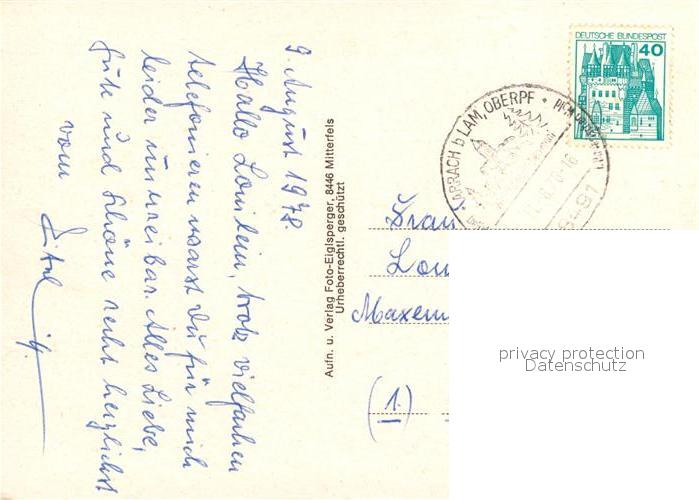 9. August 1978.
Hallo Louilein, trotz vielfachen
telefonieren warst Du für mich
leider unerreibar. Alles Liebe,
Gute und Schöne recht herzlichst
vom
Aufn. u. Verlag Foto-Eiglsperger, 8446 Mitterfels
Urheberrechtl. geschützt
DEUTSCHE BUNDESPOST
40
ARRACH b LAM, OBERPF
Frau
Lou
Maxem
(1)
privacy protection
Datenschutz